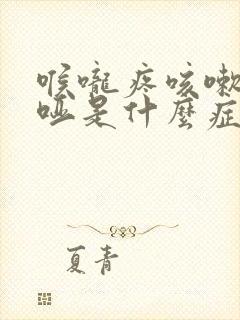 喉嚨疼咳嗽
啞是什麼症
夏青